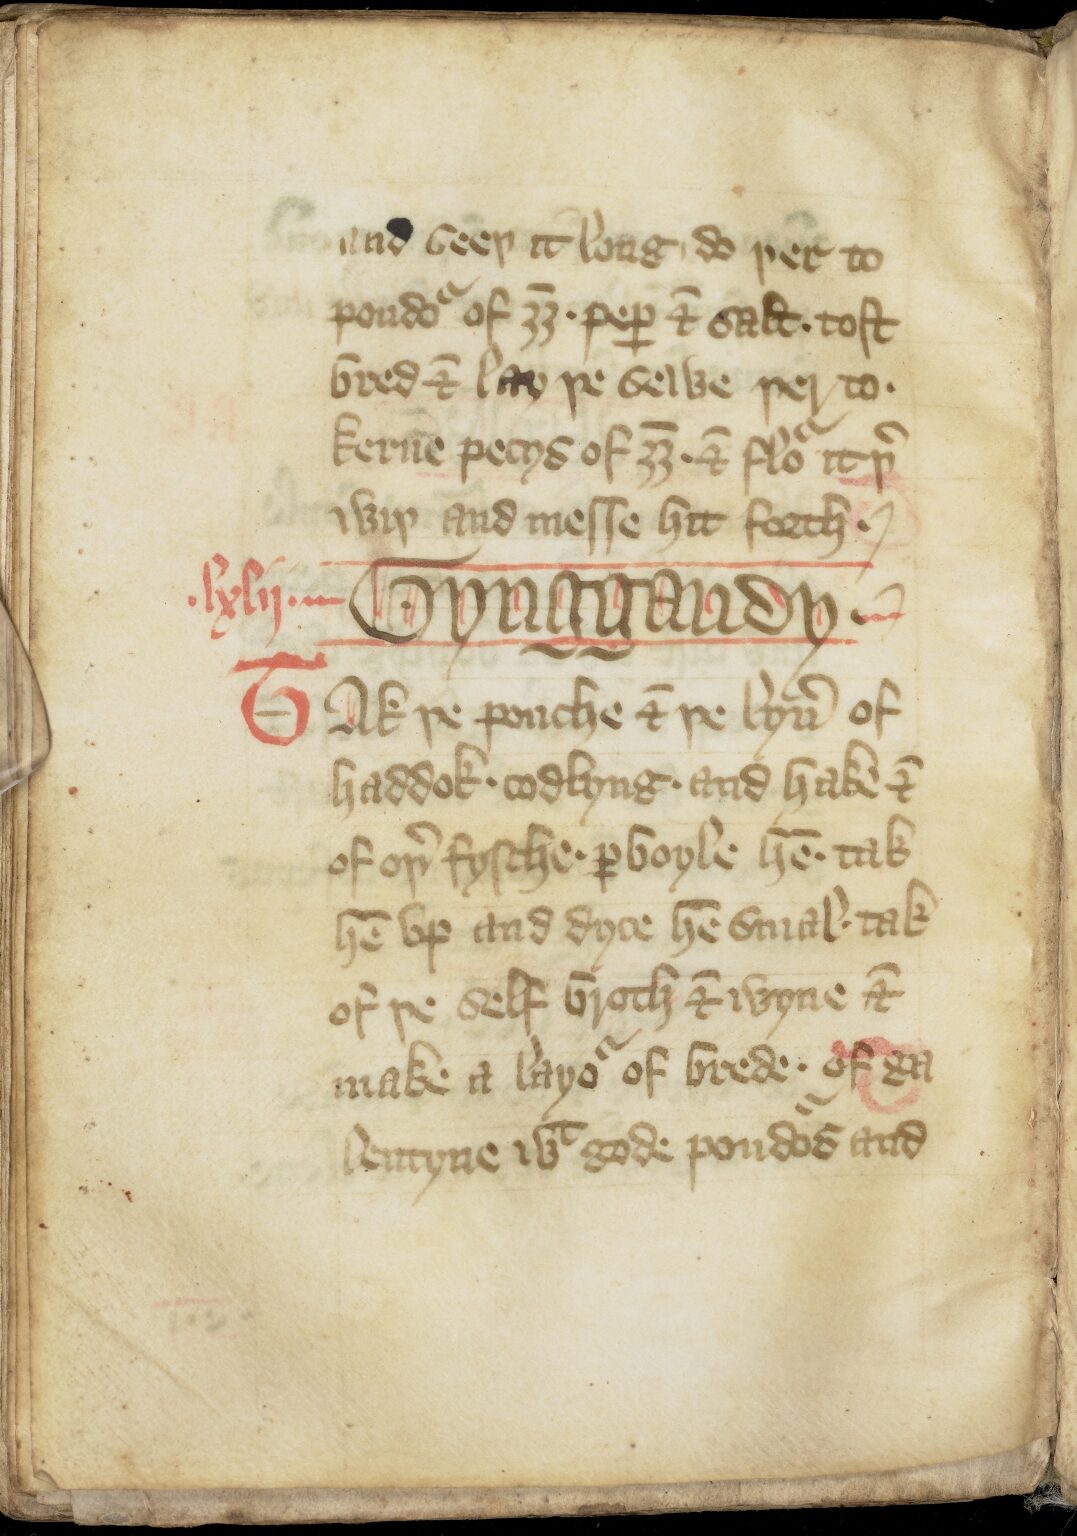 and seeþ it long do þer to
poudoʳ of ȝȝ̄. peꝑ ⁊ salt. tost
bred ⁊ lay þe sewe þer to.
kerue pecys of ȝȝ̄. ⁊ floʳ it þʳ
wiþ and messe hit forth.
.lxlij. Gyngg̃audy.
TAk þe pouche ⁊ þe lyuʳ of
haddok. codlyng. and hake ⁊
of oþʳ fysche. ꝑboyle hē. tak
hē vp and dyce hē smal. tak
of þe self broth ⁊ wyne ⁊
make a layoʳ of brede. of ga
lentyne wᵗ gode poudoʳs and